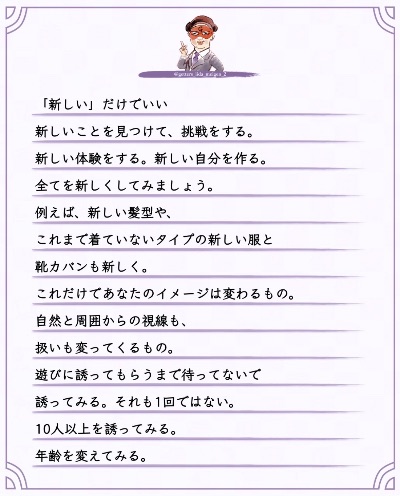 @gantetu_ikk_meigen_2
「新しい」だけでいい
新しいことを見つけて、挑戦をする。
新しい体験をする。新しい自分を作る。
全てを新しくしてみましょう。
例えば、新しい髪型や、
これまで着ていないタイプの新しい服と
靴カバンも新しく。
これだけであなたのイメージは変わるもの。
自然と周囲からの視線も、
扱いも変ってくるもの。
遊びに誘ってもらうまで待ってないで
誘ってみる。それも1回ではない。
10人以上を誘ってみる。
年齢を変えてみる。